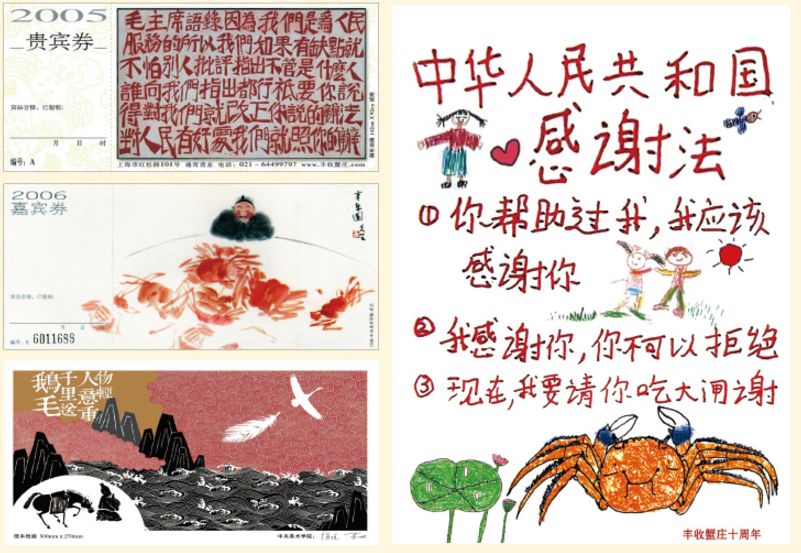 2005
贵宾券
月 日 时
编号：A
毛主席語錄因為我們是為人民
服務的所以我們如果有缺點就
不怕別人批評指出不管是什麼人
誰向我們指出都行祇要你說
得對我們就改正你說的辦法
對人民有好處我們就照你的辦
上海市红松路101号 通宵营业 电话：021－64499797 www.丰收蟹庄.com
2006
嘉宾券
月 日 时
6011688
物輕
人意重
千里送
鵝毛
纸本绘画 300mm x 270mm
中央美术学院：
中华人民共和国
感谢法
① 你帮助过我，我应该
感谢你
② 我感谢你，你不可以拒绝
③ 现在，我要请你吃大闸谢
丰收蟹庄十周年